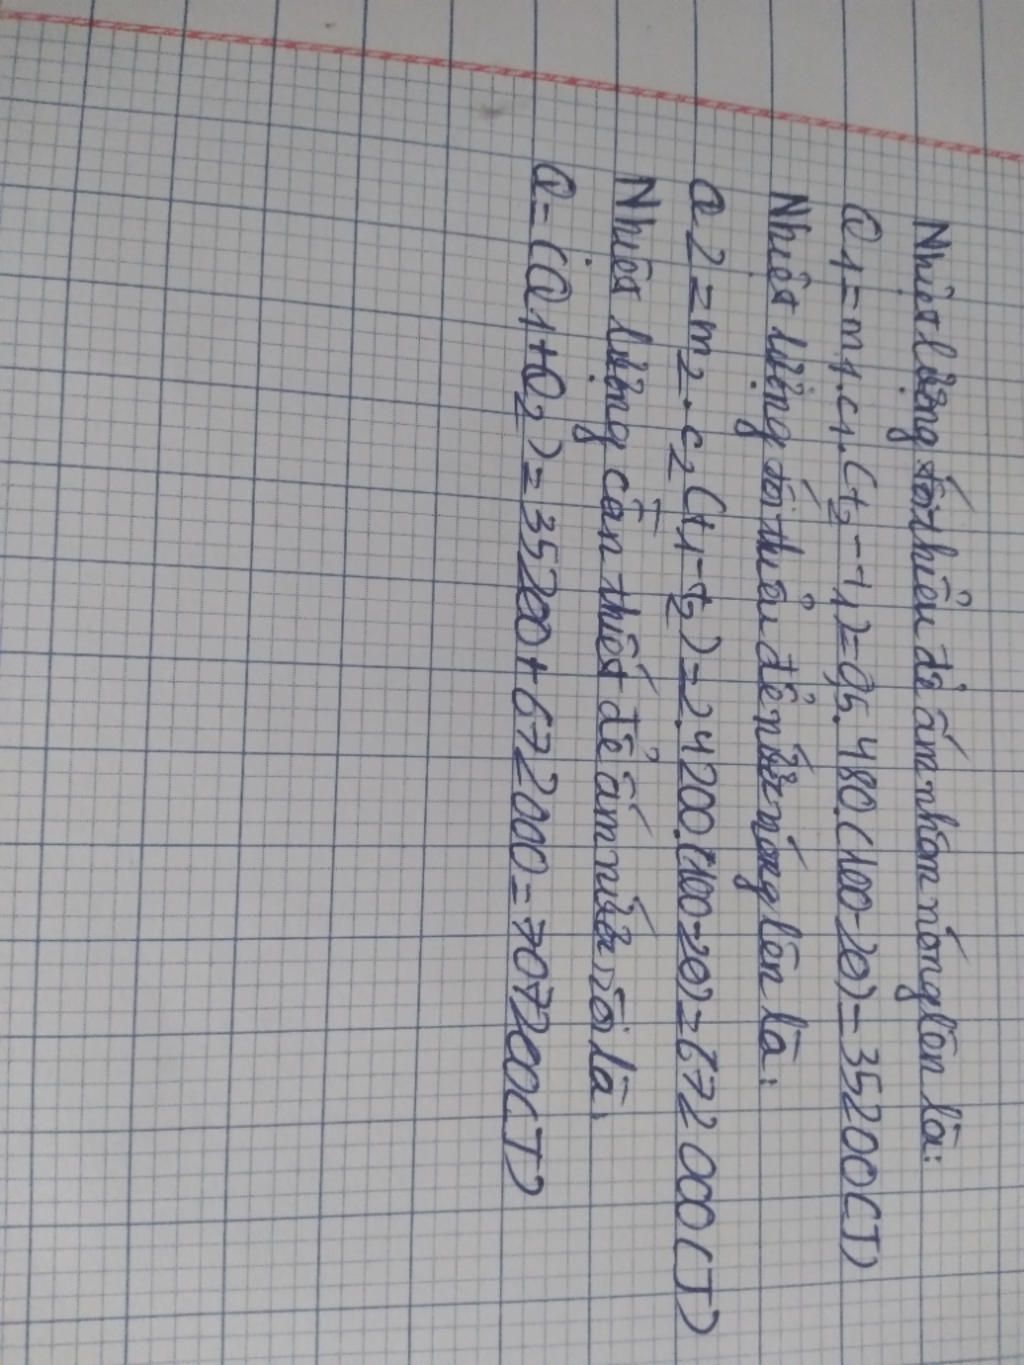 Nhiệt lượng tối thiểu để ấm nhôm nóng lên là:
Q1=m1.c1.(t2-t1)=0,5.480.(100-20)=35200(J)
Nhiệt lượng tối thiểu để nước nóng lên là:
Q2=m2.c2(t1-t2)=2.4200.(100-20)=672000(J)
Nhiệt lượng cần thiết để ấm nước sôi là:
Q=(Q1+Q2)=35200+672000=707200(J)